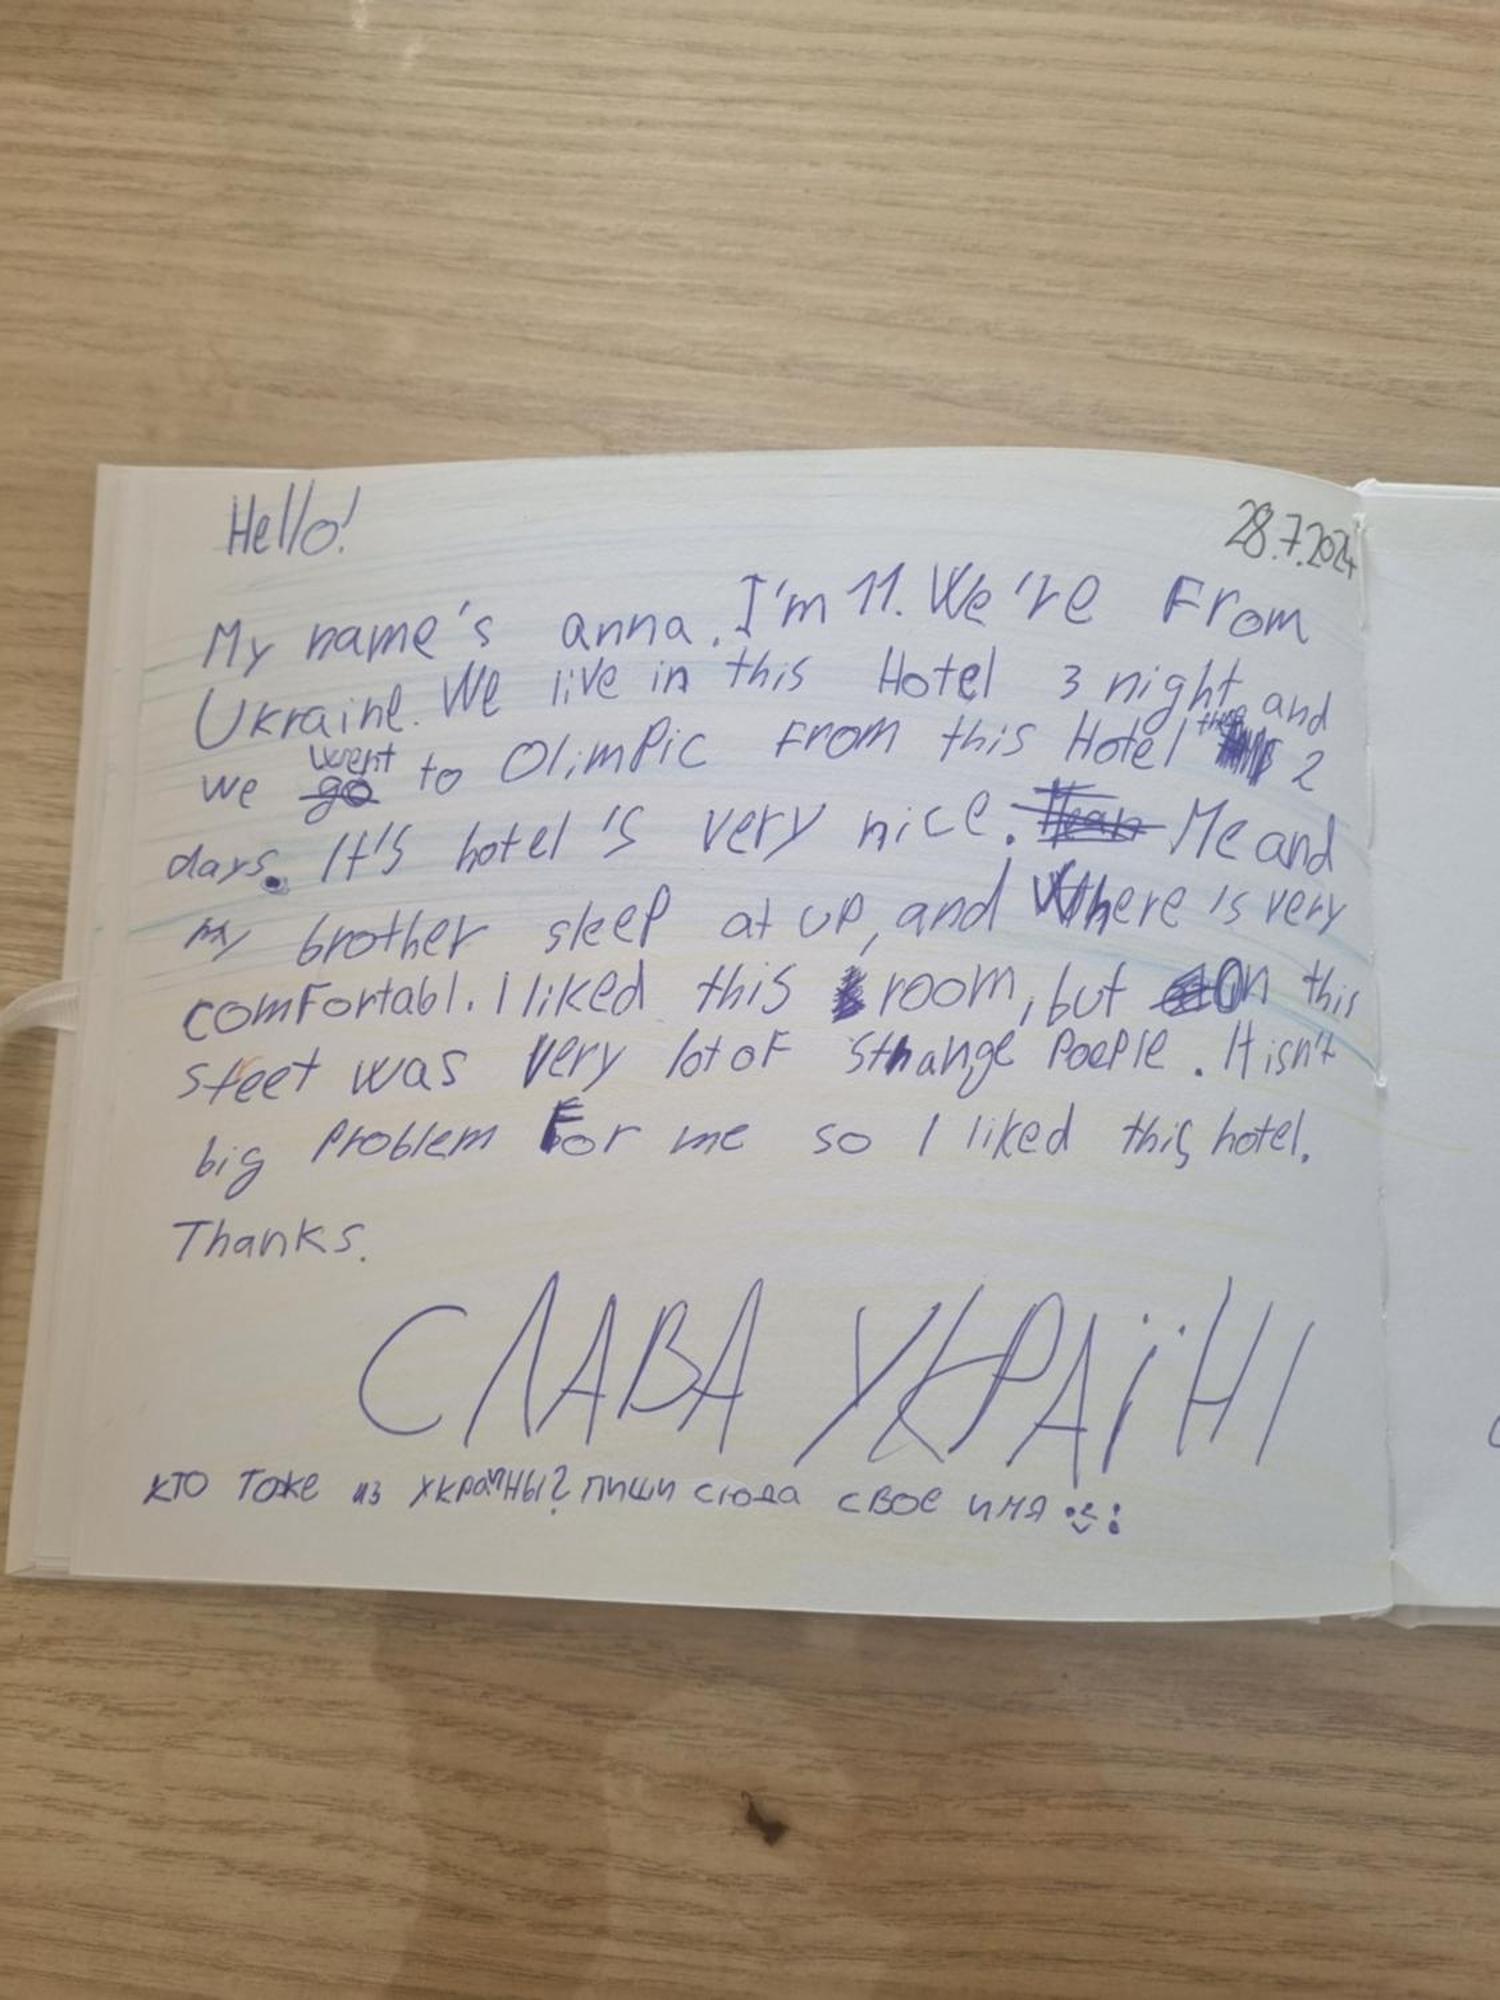 Hello!
28.7.2024
My name's anna. I'm 11. We're From
Ukraine. We live in this Hotel 3 night, and
we went to OlimPic From this Hotel 2
days. It's hotel's very nice. Me and
my brother sleep at up, and there is very
comFortabl. I liked this room, but On this
steet was very lot oF strange PoePle. It isn't
big Problem For me so I liked this hotel.
Thanks.
СЛАВА УКРАЇНІ
КТО Тоже из УКРАИНЫ? пиши сюда свое имя